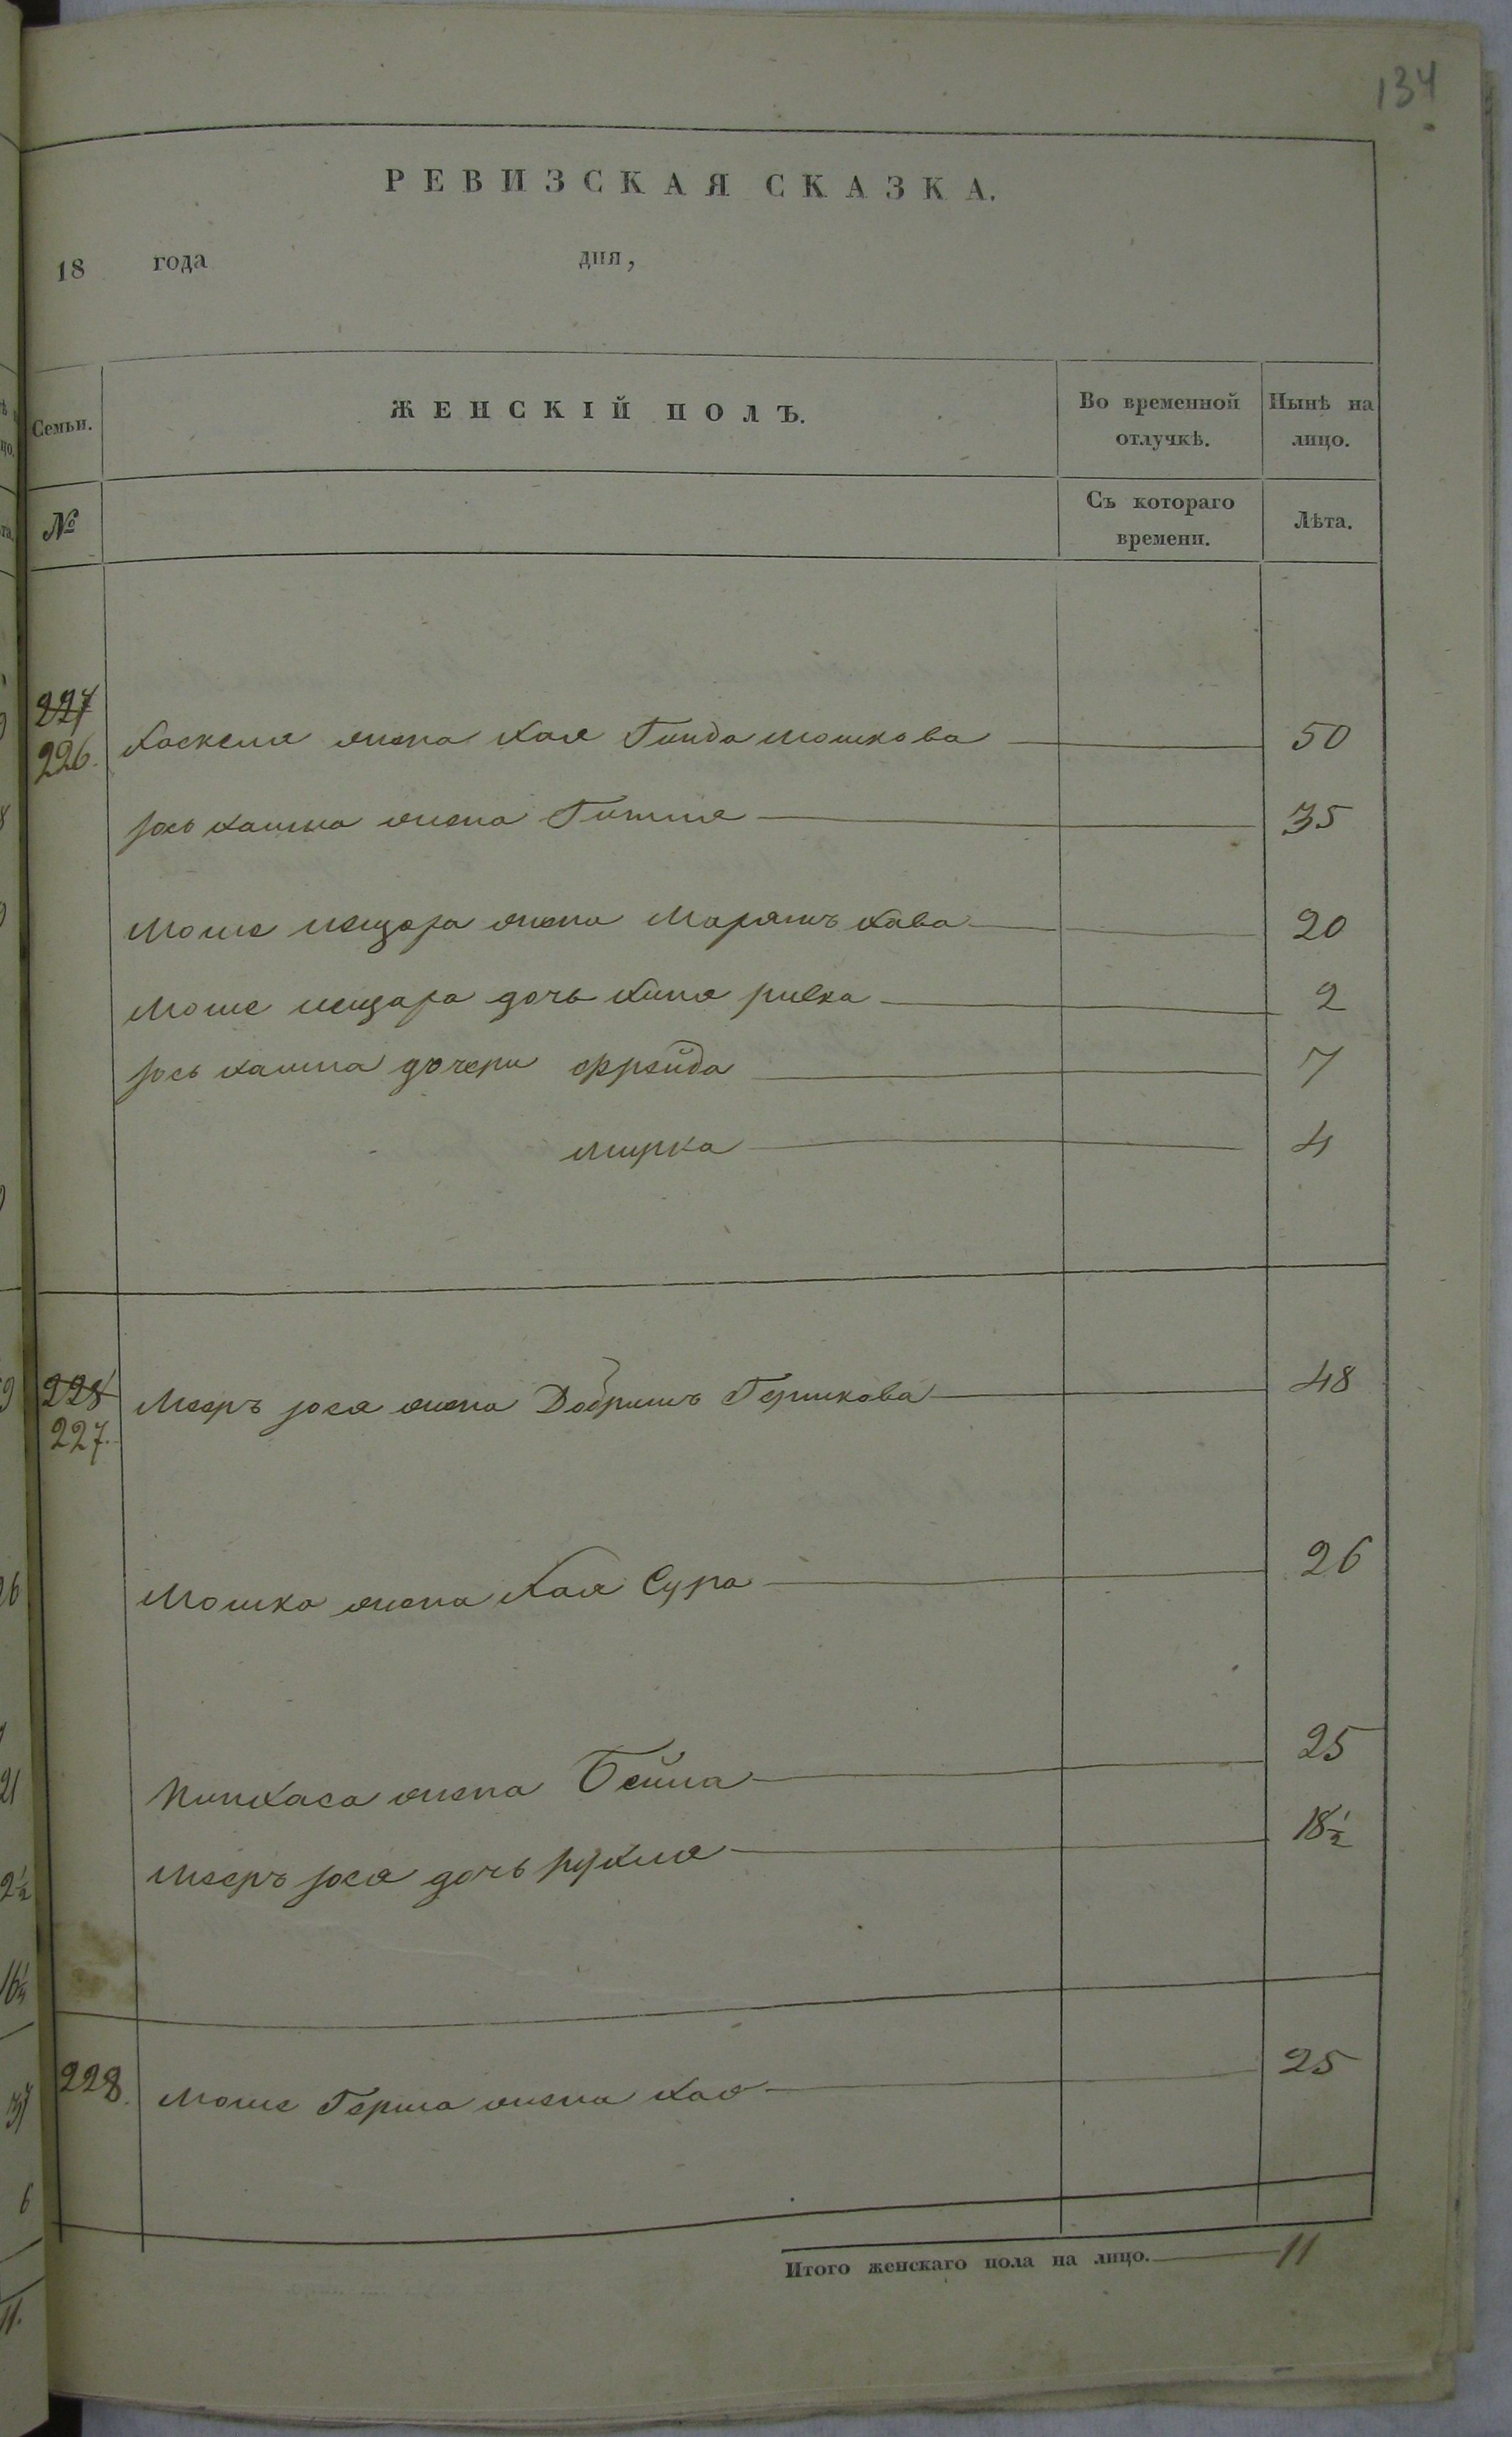 134
РЕВИЗСКАЯ СКАЗКА.
18 года дня,
Семьи. ЖЕНСКІЙ ПОЛЪ. Во временной отлучкѣ. Нынѣ на лицо.
№ Съ котораго времени. Лѣта.
227
226. Хаскеля жена Хая Гинда Мошкова 50
жена Гитля 35
Моше жена Марямъ Хава 20
Моше дочь Хина Ривка 2
дочери Фрейда 7
Мирка 4
228
227. Мееръ Йося жена Добришъ Гершкова 48
Мошка жена Хая Сура 26
Пинхаса жена Бейла 25
Мееръ Йося дочь Рухля 18½
228. Моше Герша жена Хая 25
Итого женскаго пола на лицо. 11